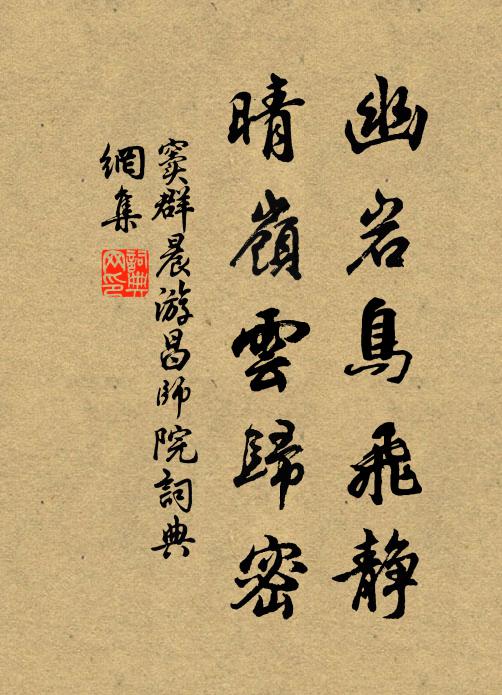 幽岩鳥飛静
晴嶺雲歸密
窦群晨游昌師院詞典
網集
詞典
网印